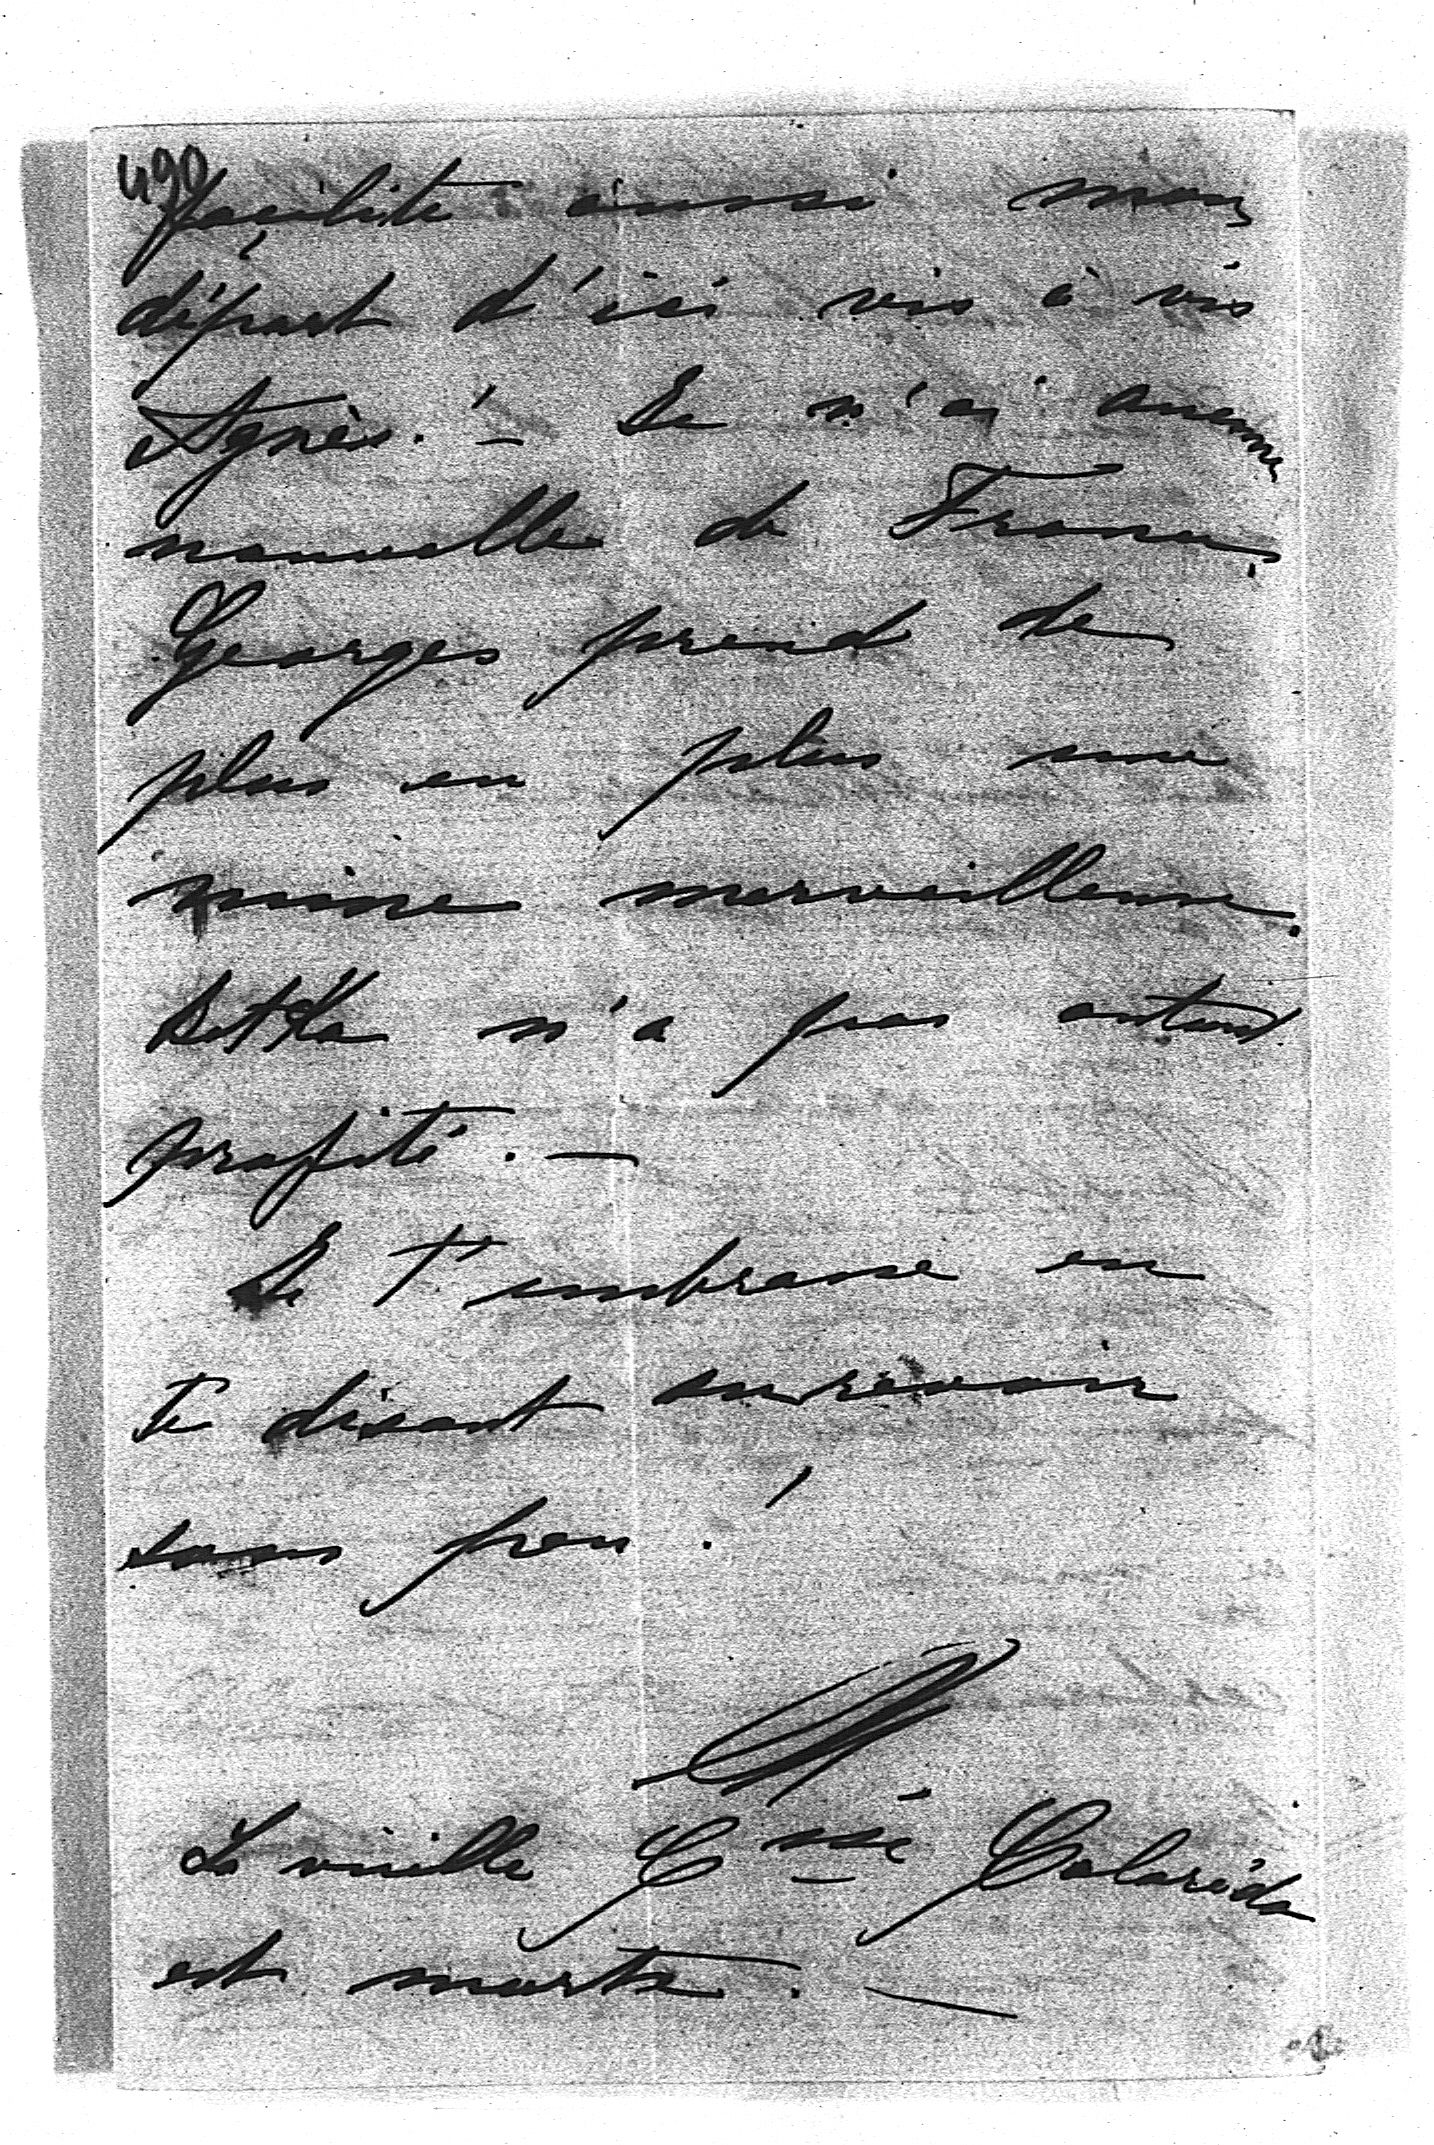 490
facilite aussi mon
départ d'ici vis à vis
Agnès. ! — Je n'ai aucune
nouvelle de France,
Georges prend de
plus en plus une
mine merveilleuse.
n'a pas autant
profité. —
Je t'embrasse en
te disant au revoir
sous peu. !
La vieille Csse Colorédo
est morte. —